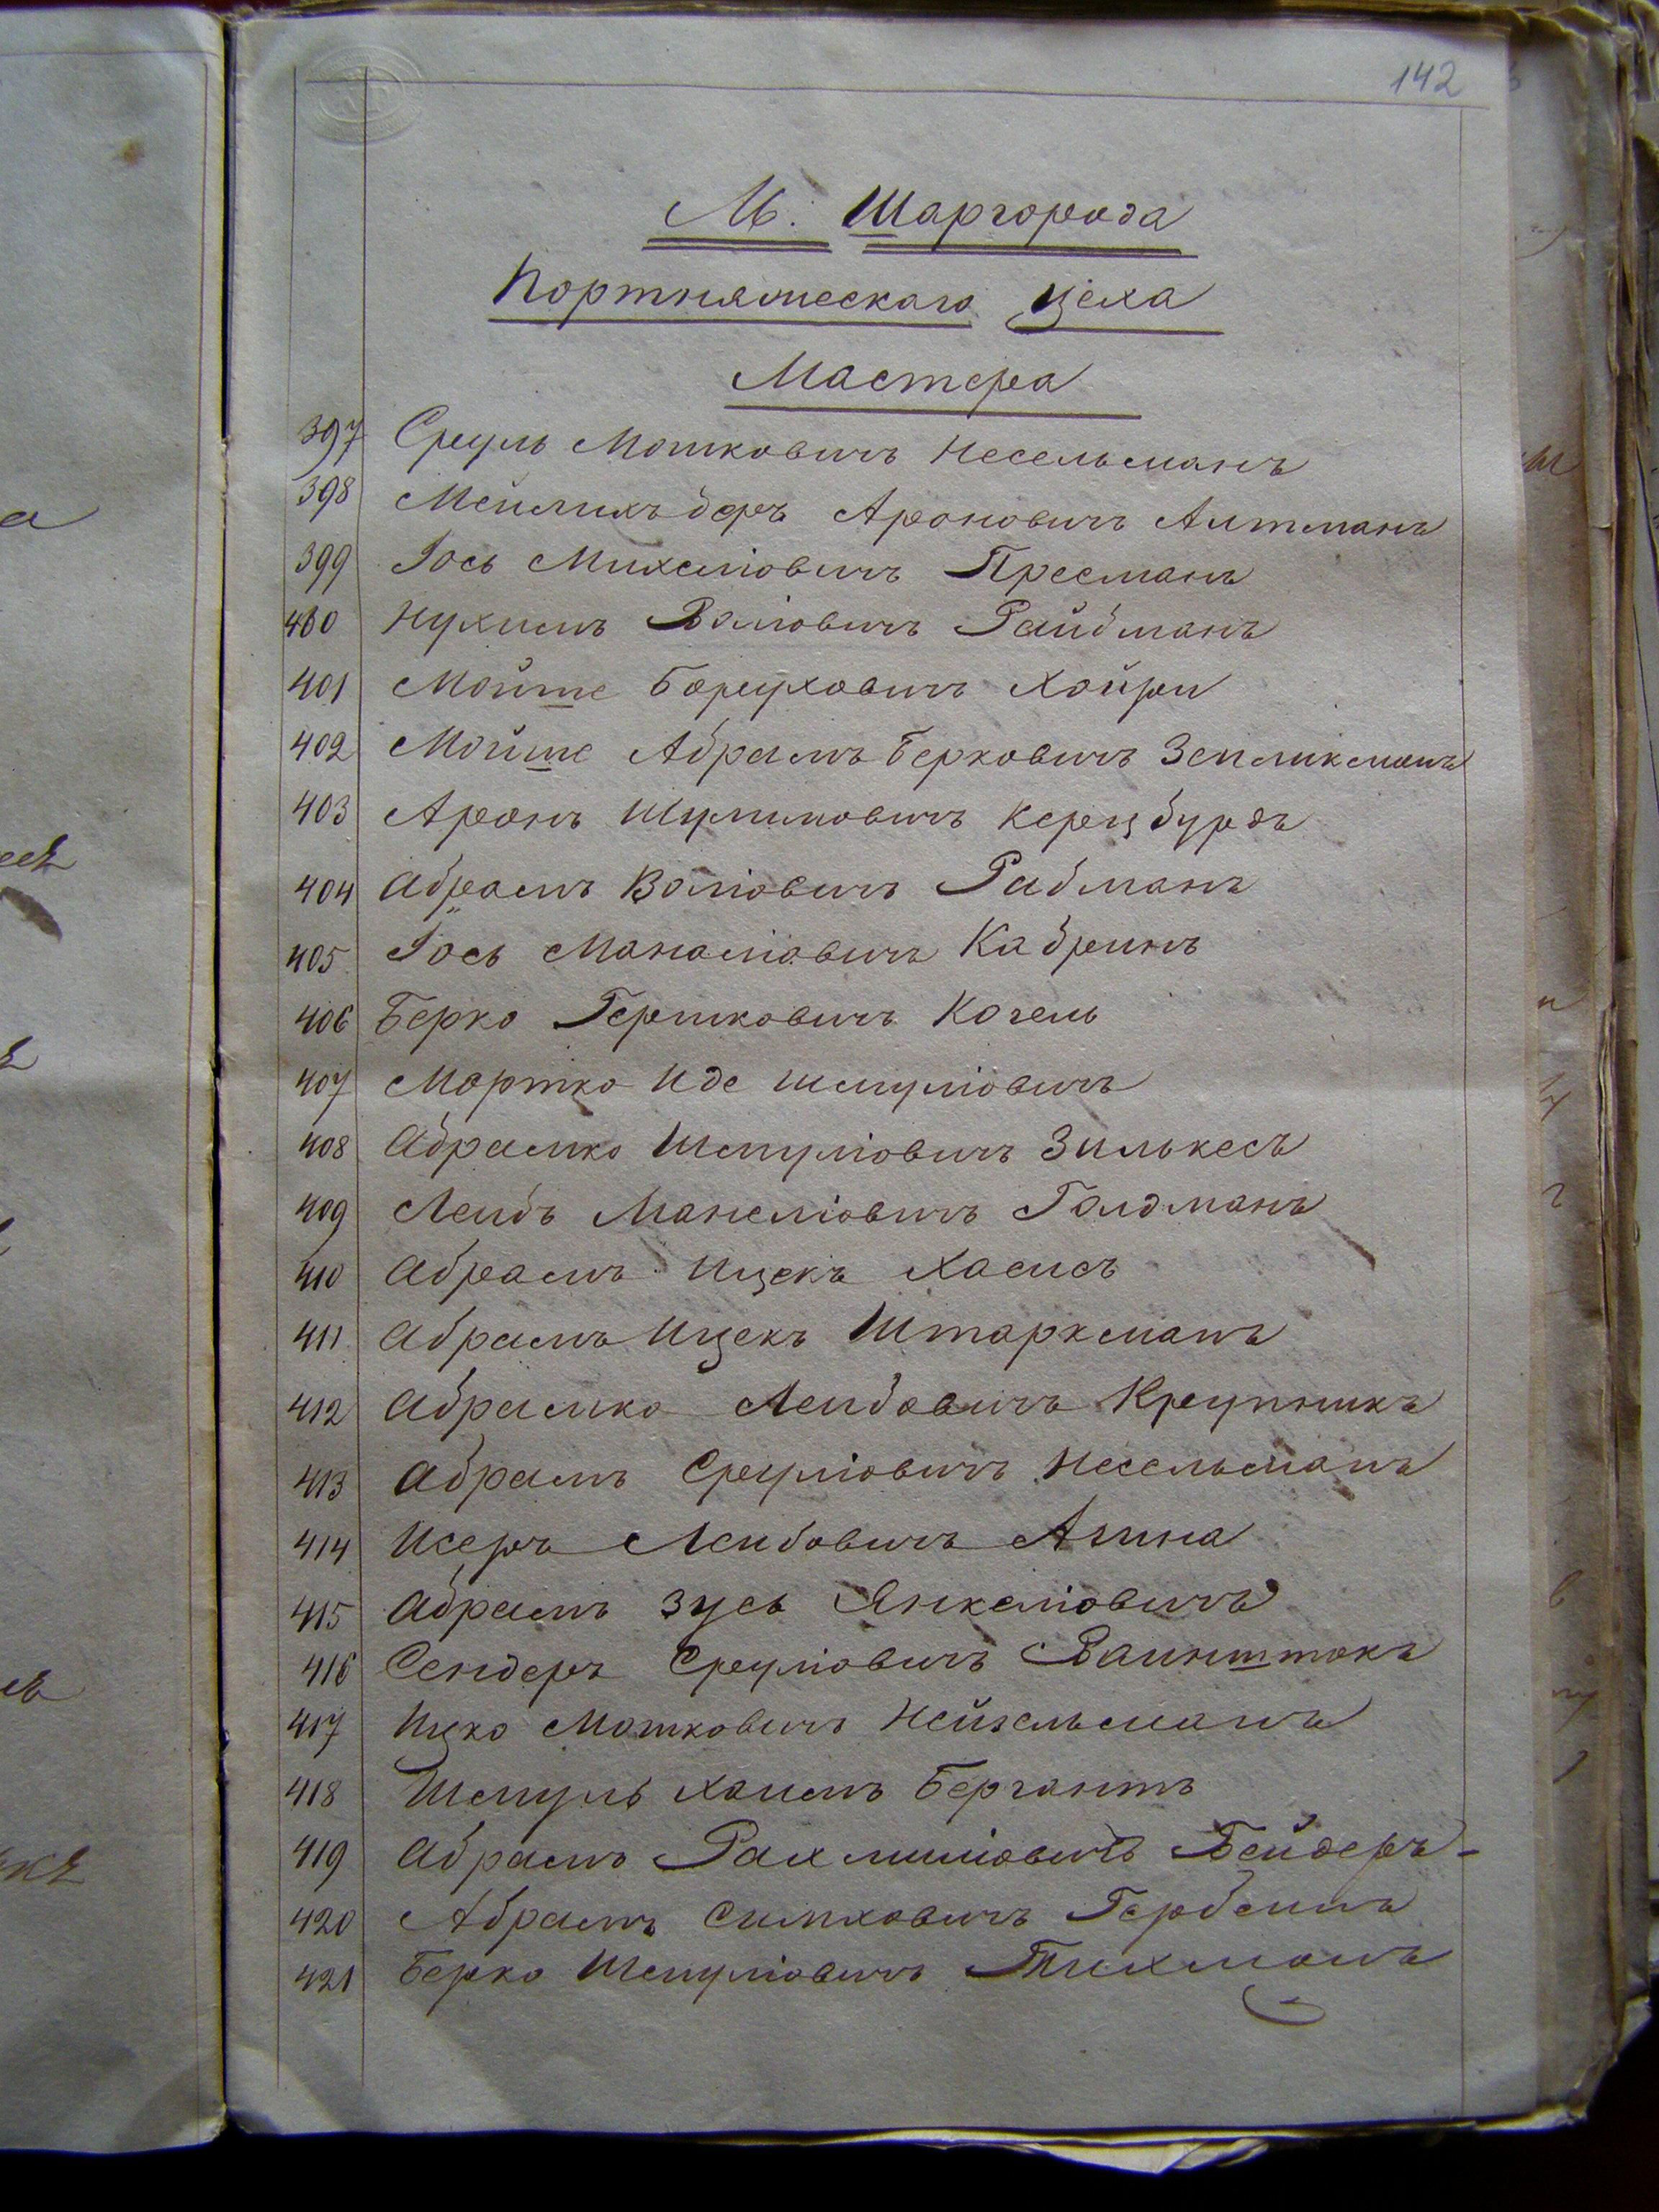 142
М. Шаргорода
Портняческаго Цеха
Мастера
397 Сруль Мошковичъ Несельманъ
398 Меилихъ беръ Ароновичъ Алтманъ
399 Іось Михеліовичъ Пресманъ
400 Нухимъ Воліовичъ Райбманъ
401 Мойше Боруховичъ Хойри
402 Мойше Абрамъ Берковичъ Зеиликманъ
403 Аронъ Шулимовичъ Керцбурдъ
404 Абрамъ Воліовичъ Рабманъ
405 Іось Маналіовичъ Кабринъ
406 Берко Гершковичъ Когель
407 Мортко Иде Шмуліовичъ
408 Абрамко Шмуліовичъ Зилькесъ
409 Леибъ Манеліовичъ Голдманъ
410 Абрамъ Ицекъ Хасисъ
411 Абрамъ Ицекъ Штаркманъ
412 Абрамко Леибовичъ Крупникъ
413 Абрамъ Сруліовичъ Несельманъ
414 Исеръ Леибовичъ Агина
415 Абрамъ Зусь Янкеліовичъ
416 Сендеръ Сруліовичъ Ваинштокъ
417 Ицко Мошковичъ Нейзельманъ
418 Шмуль Хаимъ Бергантъ
419 Абрамъ Рахмиліовичъ Бейдеръ
420 Абрамъ Симховичъ
421 Берко Шмуліовичъ Тихманъ